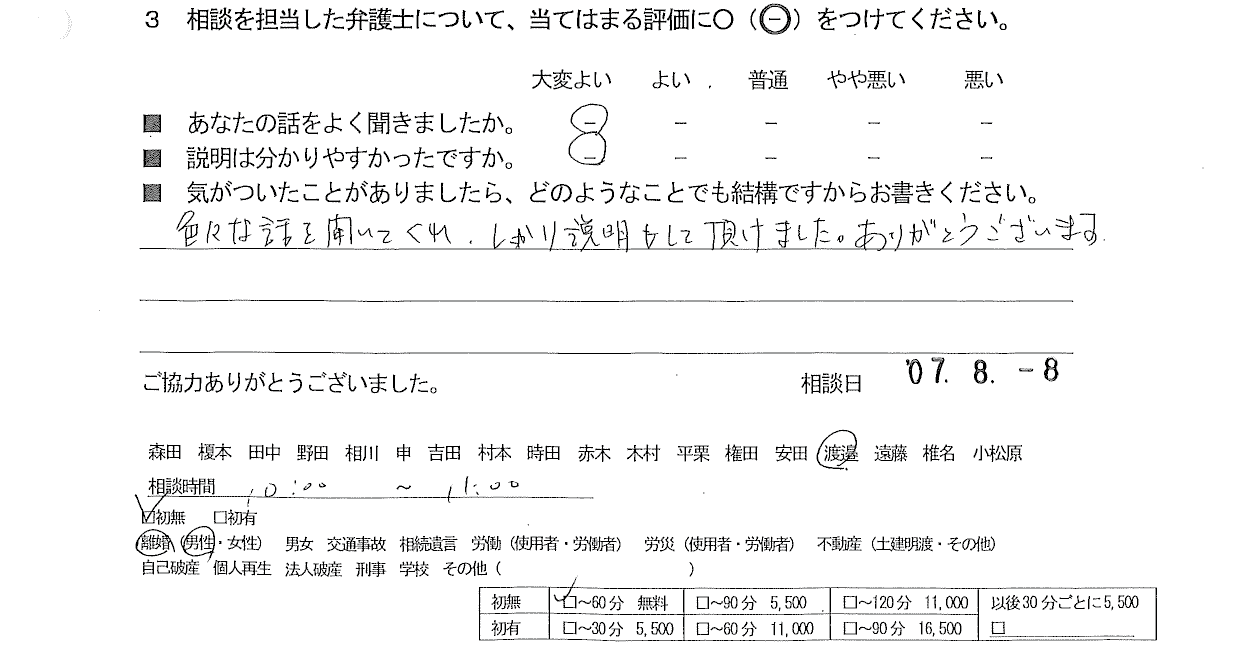 3 相談を担当した弁護士について、当てはまる評価に○(㊀)をつけてください。
大変よい よい 普通 やや悪い 悪い
■ あなたの話をよく聞きましたか。 － － － － －
■ 説明は分かりやすかったですか。 － － － － －
■ 気がついたことがありましたら、どのようなことでも結構ですからお書きください。
色々な話を聞いてくれ、しっかり説明もして頂けました。ありがとうございます
ご協力ありがとうございました。 相談日 '07. 8. -8
森田 榎本 田中 野田 相川 申 吉田 村本 時田 赤木 木村 平栗 権田 安田 渡邉 遠藤 椎名 小松原
相談時間 10:00 ～ 11:00
☑初無 □初有
離婚(男性・女性) 男女 交通事故 相続遺言 労働(使用者・労働者) 労災(使用者・労働者) 不動産(土建明渡・その他)
自己破産 個人再生 法人破産 刑事 学校 その他( )
初無 ☑～60分 無料 □～90分 5,500 □～120分 11,000 以後30分ごとに5,500
初有 □～30分 5,500 □～60分 11,000 □～90分 16,500 □